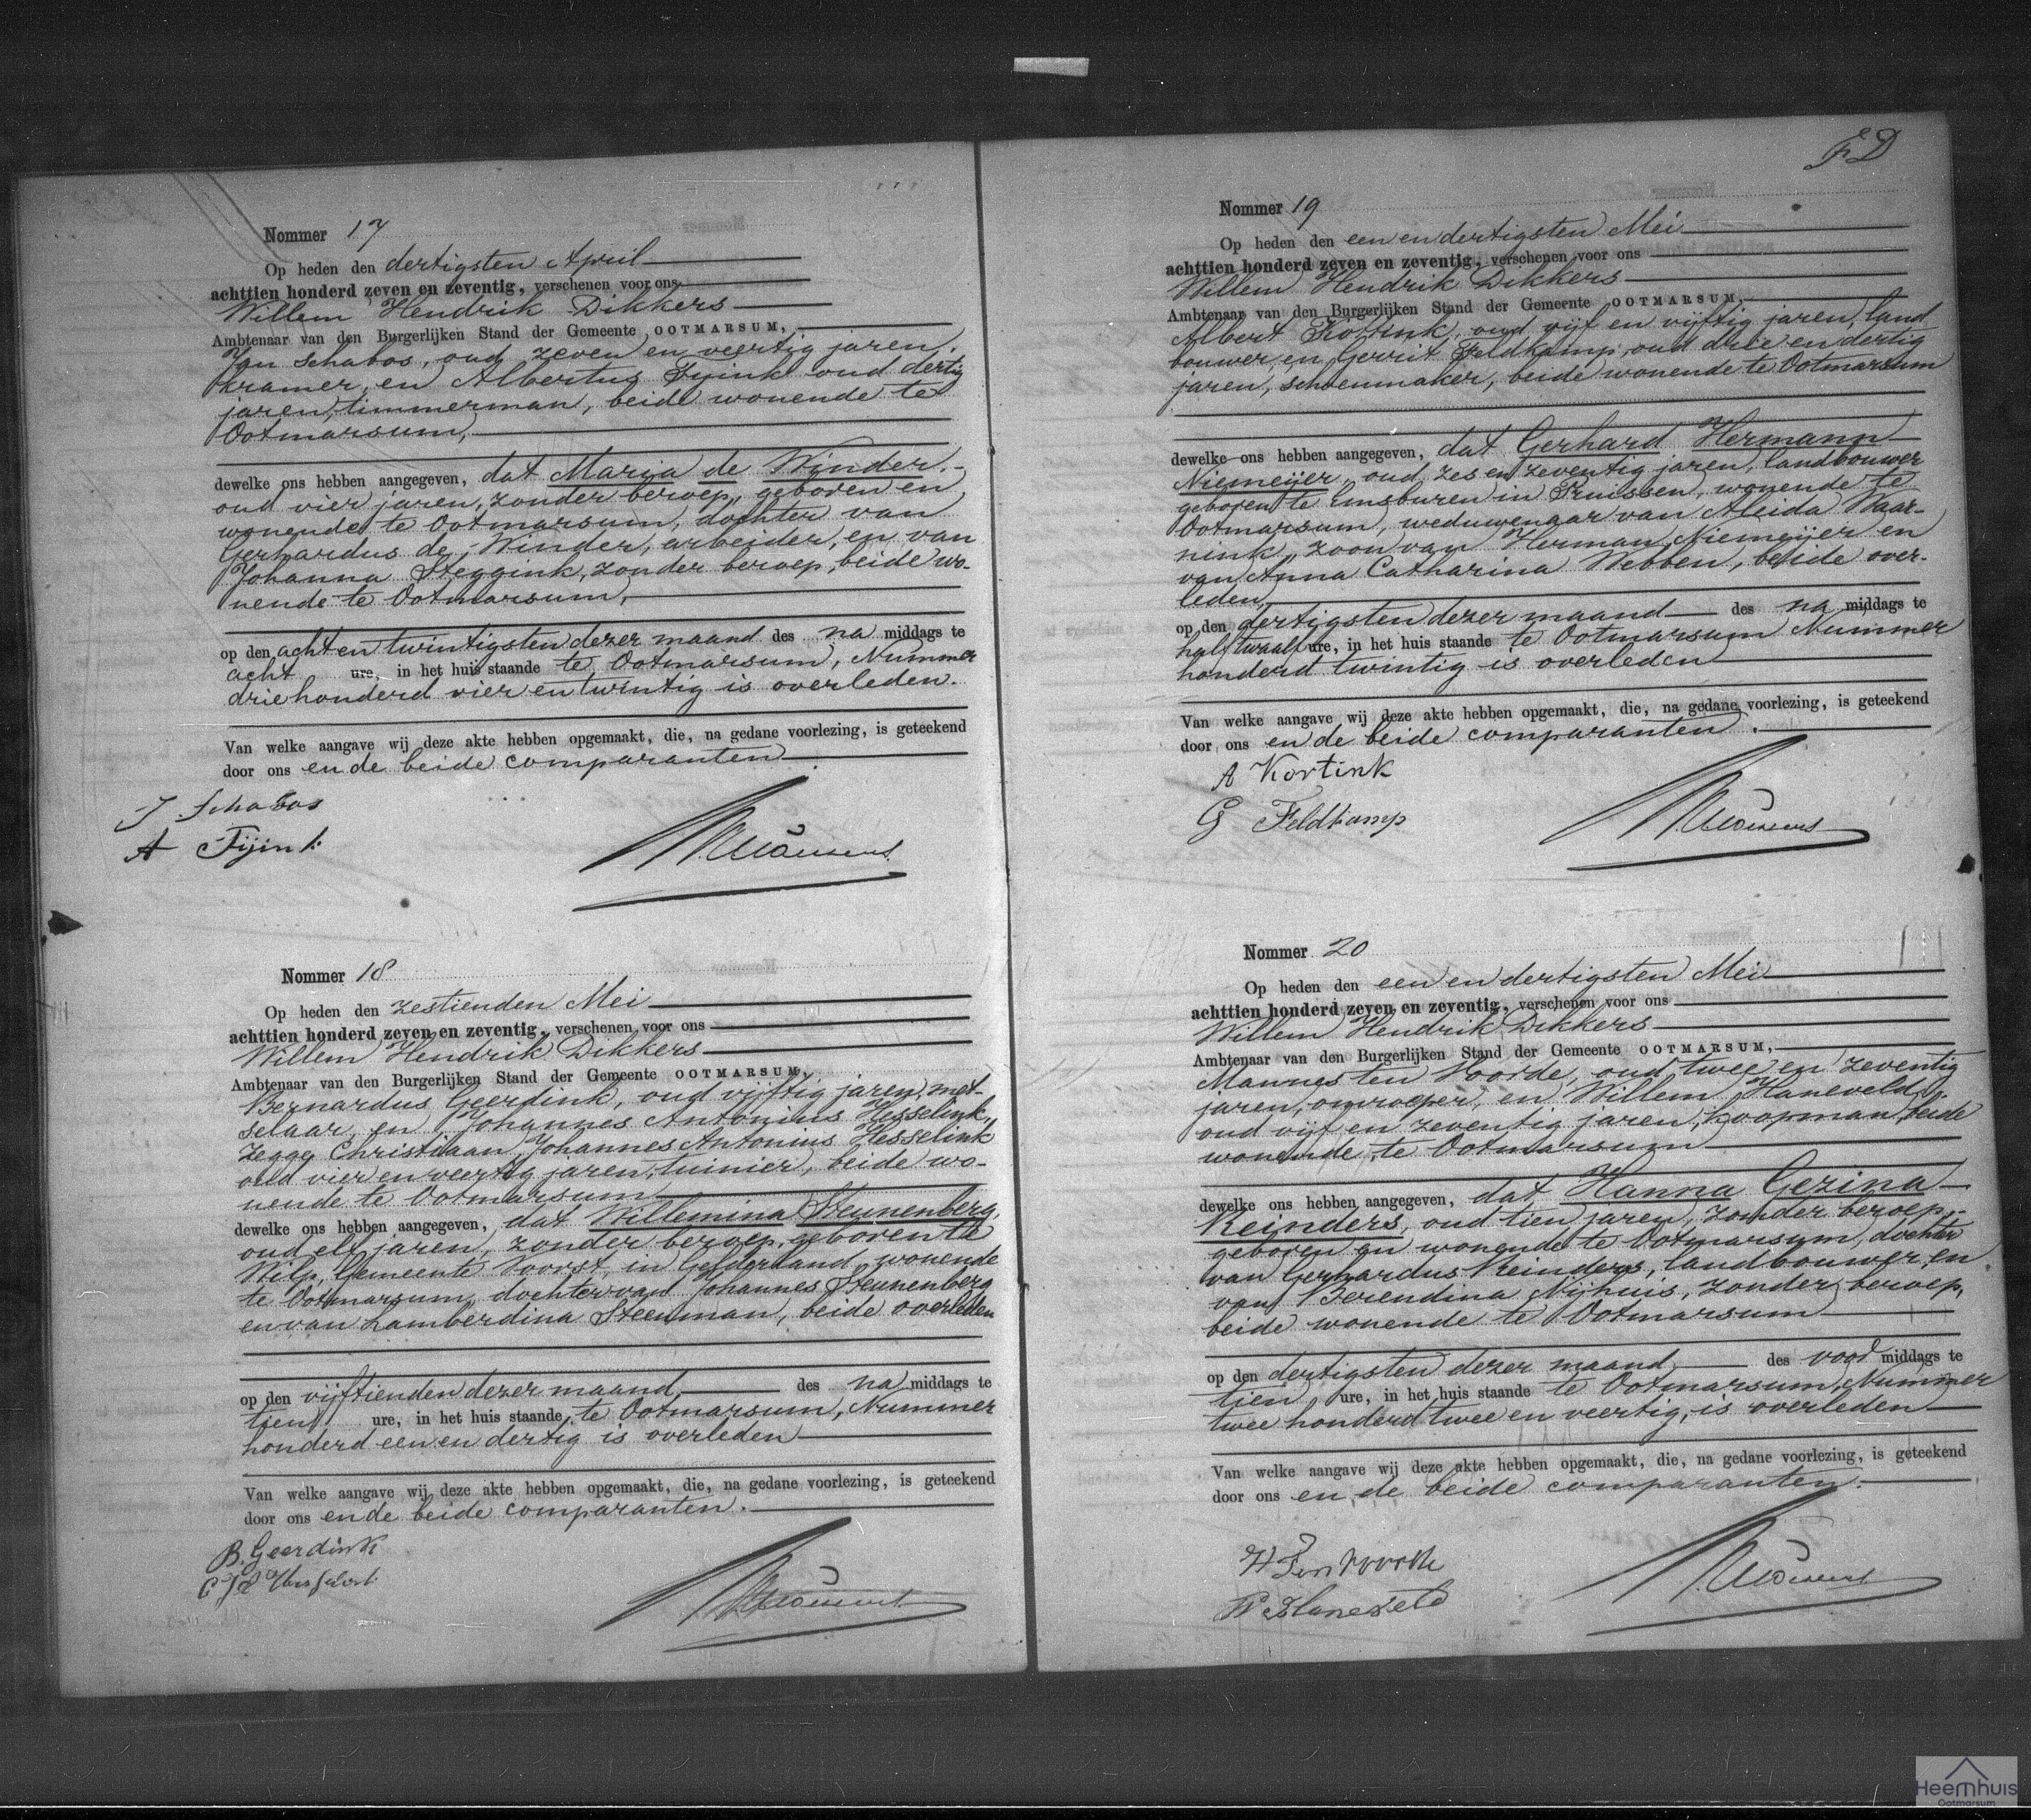 Nommer 17
Op heden den dertigsten April
achttien honderd zeven en zeventig, verschenen voor ons
Willem Hendrik Dikkers
Ambtenaar van den Burgerlijken Stand der Gemeente OOTMARSUM,
Jan Schabos, oud zeven en veertig jaren,
kramer, en Albertus Fijink oud dertig
jaren, timmerman, beide wonende te
Ootmarsum,
dewelke ons hebben aangegeven, dat Maria de Winder,
oud vier jaren, zonder beroep, geboren en
wonende te Ootmarsum, dochter van
Gerhardus de Winder, arbeider, en van
Johanna Steggink, zonder beroep, beide wo-
nende te Ootmarsum,
op den acht en twintigsten dezer maand des na middags te
acht ure, in het huis staande te Ootmarsum, Nummer
driehonderd vier en twintig is overleden.
Van welke aangave wij deze akte hebben opgemaakt, die, na gedane voorlezing, is geteekend
door ons en de beide comparanten
J. Schabos
A Fijink
Nommer 18
Op heden den zestienden Mei
achttien honderd zeven en zeventig, verschenen voor ons
Willem Hendrik Dikkers
Ambtenaar van den Burgerlijken Stand der Gemeente OOTMARSUM,
Bernardus Geerdink, oud vijftig jaren, met-
selaar, en Johannes Antonius Hesselink,
zegge Christiaan Johannes Antonius Hesselink
oud vier en veertig jaren, tuinier, beide wo-
nende te Ootmarsum
dewelke ons hebben aangegeven, dat Willemina Steunenberg,
oud elf jaren, zonder beroep, geboren te
Wilp, Gemeente Voorst, in Gelderland, wonende
te Ootmarsum, dochter van Johannes Steunenberg
en van Lamberdina Steenman, beide overleden
op den vijftienden dezer maand, des na middags te
tien ure, in het huis staande te Ootmarsum, Nummer
honderd een en dertig is overleden
Van welke aangave wij deze akte hebben opgemaakt, die, na gedane voorlezing, is geteekend
door ons en de beide comparanten.
B. Geerdink
FD
Nommer 19
Op heden den een en dertigsten Mei
achttien honderd zeven en zeventig, verschenen voor ons
Willem Hendrik Dikkers
Ambtenaar van den Burgerlijken Stand der Gemeente OOTMARSUM,
Albert Kortink, oud vijf en vijftig jaren, land
bouwer, en Gerrit Feldkamp, oud drie en dertig
jaren, schoenmaker, beide wonende te Ootmarsum
dewelke ons hebben aangegeven, dat Gerhard Hermann
Niemeijer, oud zes en zeventig jaren, landbouwer
geboren te Emsburen in Pruissen, wonende te
Ootmarsum, weduwenaar van Aleida Waar-
nink, zoon van Herman Niemeijer en
van Anna Catharina Webben, beide over-
leden,
op den dertigsten dezer maand des na middags te
half twaalf ure, in het huis staande te Ootmarsum Nummer
honderd twintig is overleden
Van welke aangave wij deze akte hebben opgemaakt, die, na gedane voorlezing, is geteekend
door ons en de beide comparanten.
A Kortink
G Feldkamp
Nommer 20
Op heden den een en dertigsten Mei
achttien honderd zeven en zeventig, verschenen voor ons
Willem Hendrik Dikkers
Ambtenaar van den Burgerlijken Stand der Gemeente OOTMARSUM,
Mannes ten Voorde, oud twee en zeventig
jaren, omroeper, en Willem Haneveld,
oud vijf en zeventig jaren, koopman, beide
wonende te Ootmarsum
dewelke ons hebben aangegeven, dat Hanna Gezina
Reinders, oud tien jaren, zonder beroep,
geboren en wonende te Ootmarsum, dochter
van Gerhardus Reinders, landbouwer, en
van Berendina Nijhuis, zonder beroep,
beide wonende te Ootmarsum
op den dertigsten dezer maand des voor middags te
tien ure, in het huis staande te Ootmarsum, Nummer
twee honderd twee en veertig, is overleden
Van welke aangave wij deze akte hebben opgemaakt, die, na gedane voorlezing, is geteekend
door ons en de beide comparanten.
Ten Voorde
W Haneveld
Heemhuis
Ootmarsum